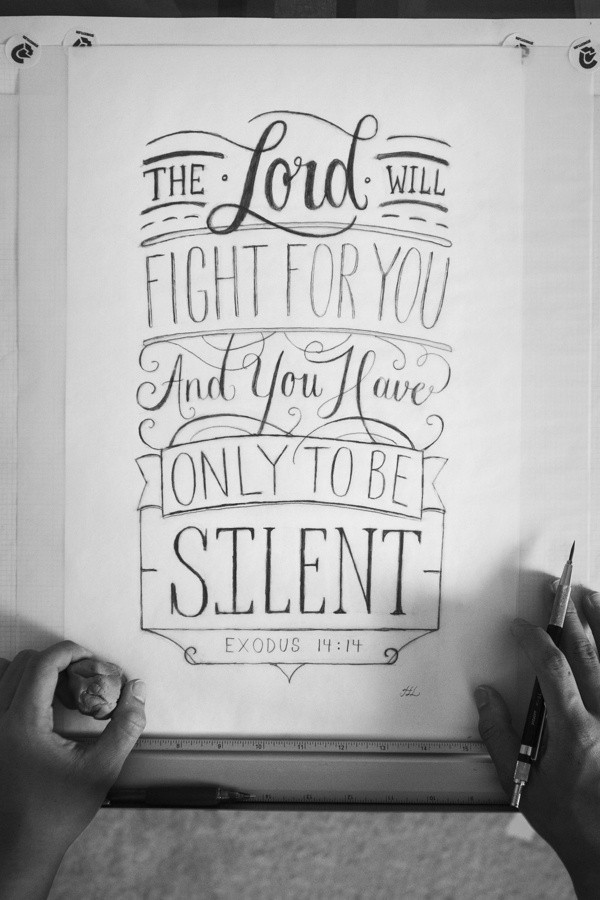 THE · Lord · WILL
FIGHT FOR YOU
And You Have
ONLY TO BE
SILENT
EXODUS 14:14